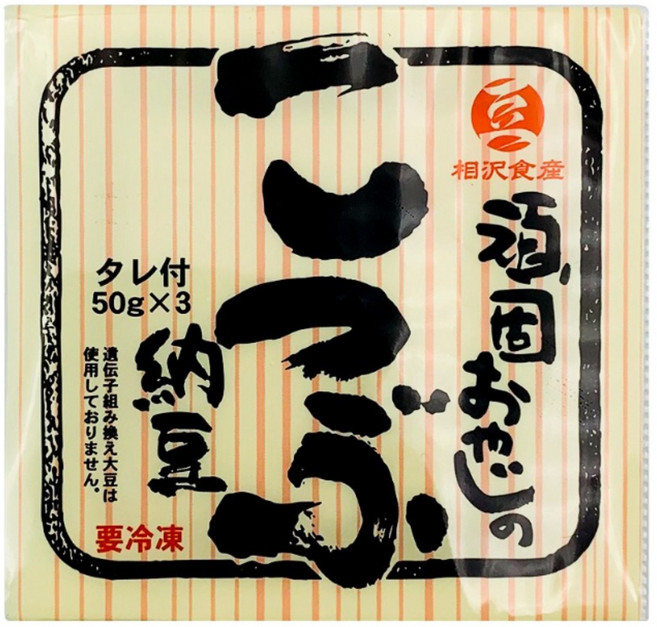 豆
相沢食産
頑固おやじの
こつぶ
納豆
タレ付
50g×3
遺伝子組み換え大豆は
使用しておりません。
要冷凍